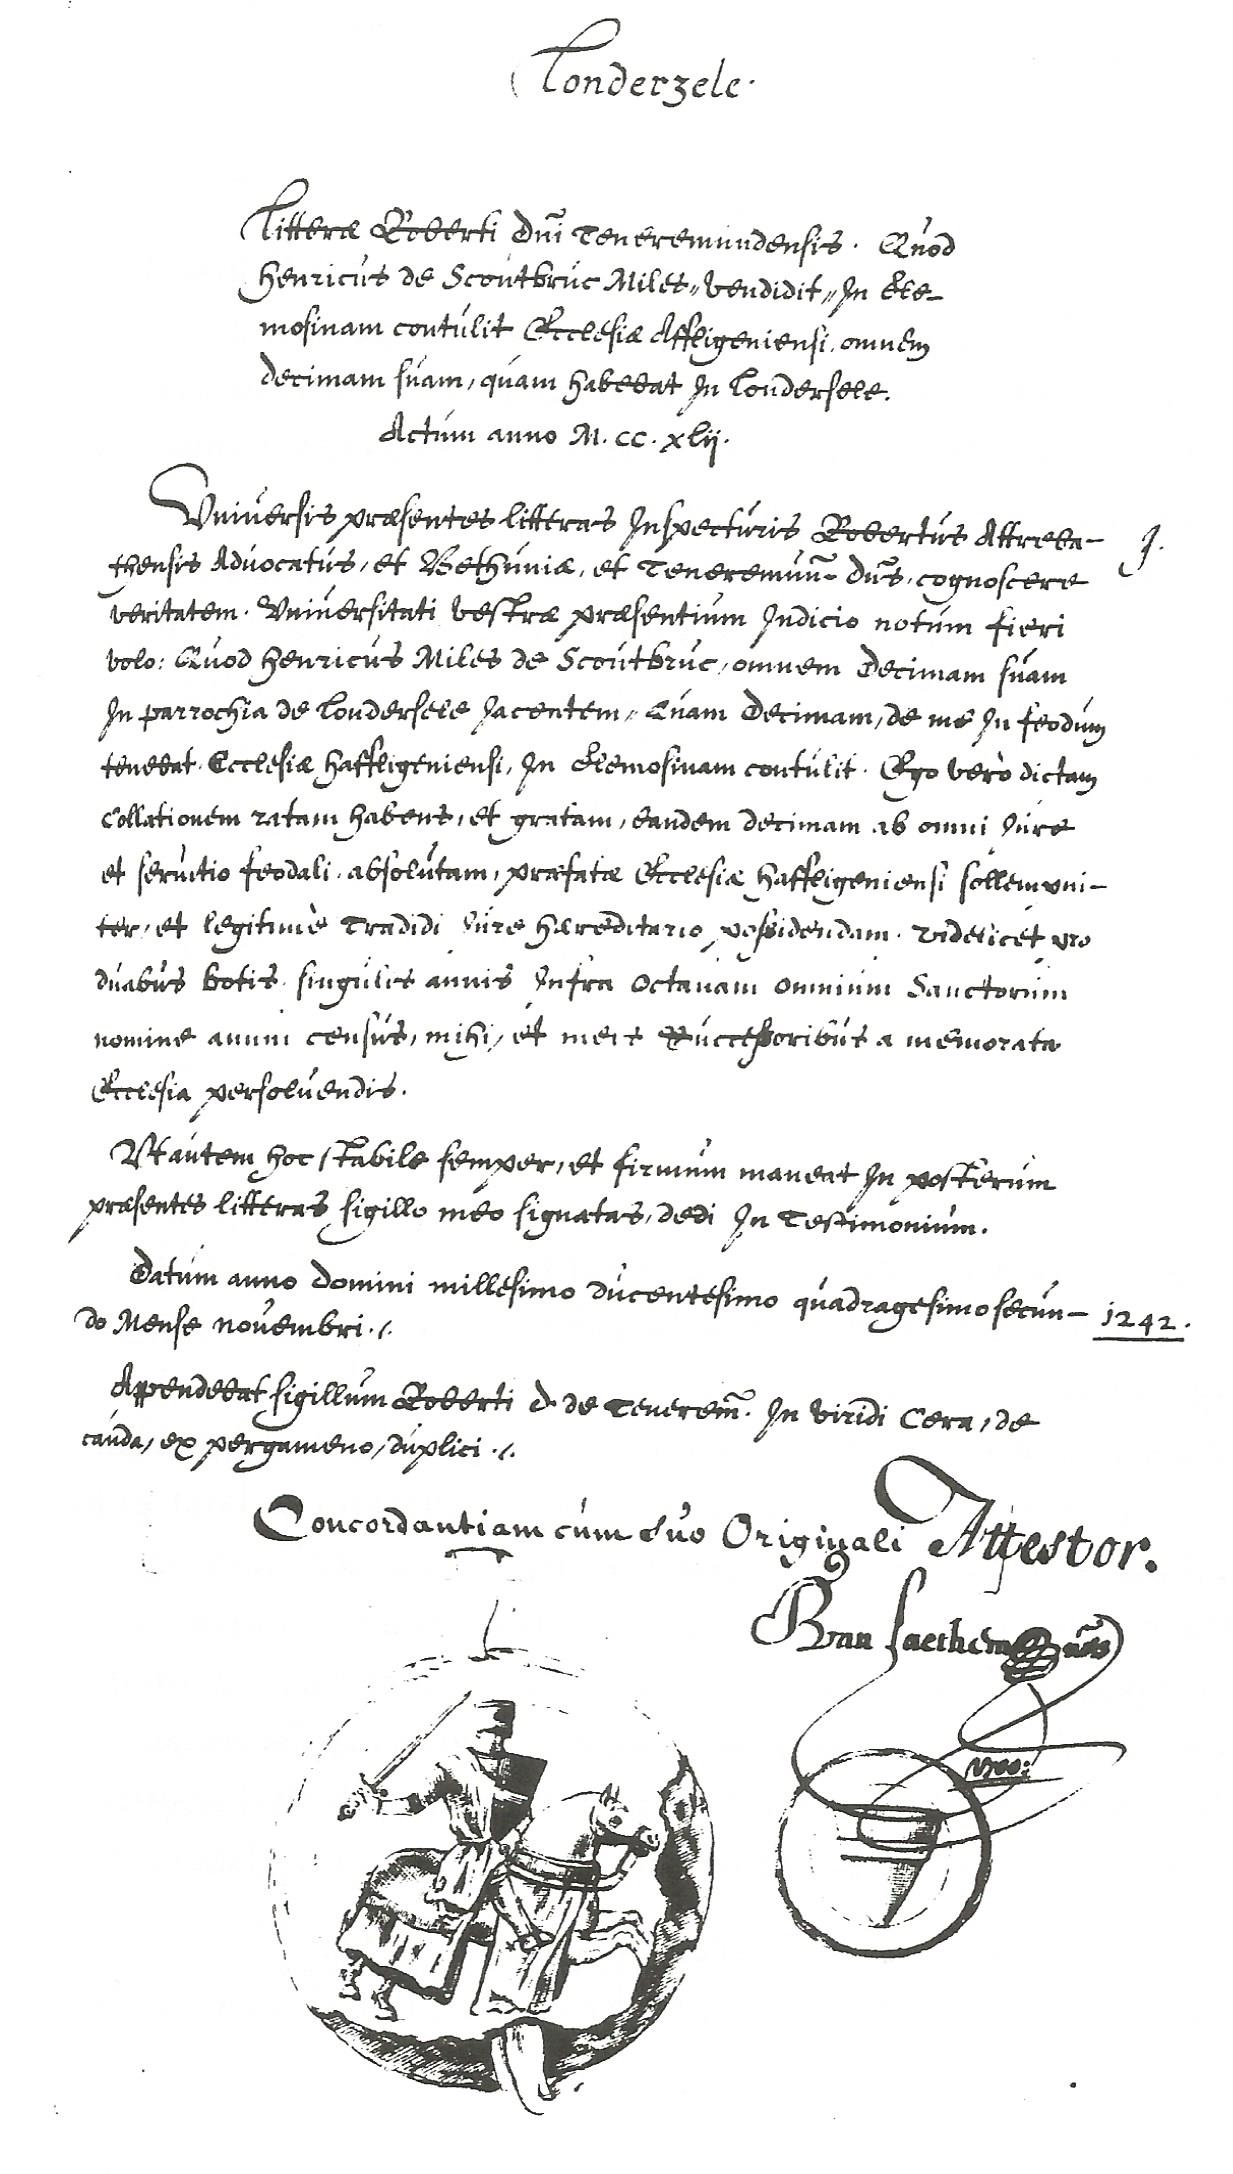 Londerzele.
Litteræ Roberti Dñi Teneremundensis. Quod
Henricus de Scoutbruc Miles,, vendidit,, In Ele-
mosinam contulit Ecclesiæ Affligeniensi, omnem
decimam suam, quam habebat In Londersele.
Actum anno M. CC. xlij.
Vniuersis præsentes litteras Inspecturis Robertus Attreba-
thensis Aduocatus, et Bethuniæ, et Teneremuñ- Dñs, cognoscere
veritatem. Vniuersitati vestræ præsentium Indicio notum fieri
volo: Quod Henricus Miles de Scoutbruc, omnem Decimam suam
In parrochia de Londersele Jacentem,, Quam Decimam, de me In feodum
tenebat. Ecclesiæ Haffligeniensi, In Elemosinam contulit. Ego verò dictam
Collationem ratam habens, et gratam, eandem decimam ab omni Jure
et seruitio feodali. absolutam, præfatæ Ecclesiæ Haffligeniensi sollempni-
ter, et legitimè Tradidi Jure Hæreditario possidendam. Videlicet pro
duabus botis. singulis annis Infra Octauam Omnium Sanctorum
nomine annui census, mihi, et meis Successoribus a memorata
Ecclesia persoluendis.
Vt autem hoc stabile semper, et firmum maneat In posterum
præsentes litteras sigillo meo signatas, dedi In Testimonium.
Datum anno Domini millesimo ducentesimo quadragesimo secun- 1242.
do Mense nouembri.
Appendebat sigillum Roberti D. de Tenerem̃. In viridi Cera, de
cauda, ex pergameno, duplici.
Concordantiam cum suo Originali Attestor.